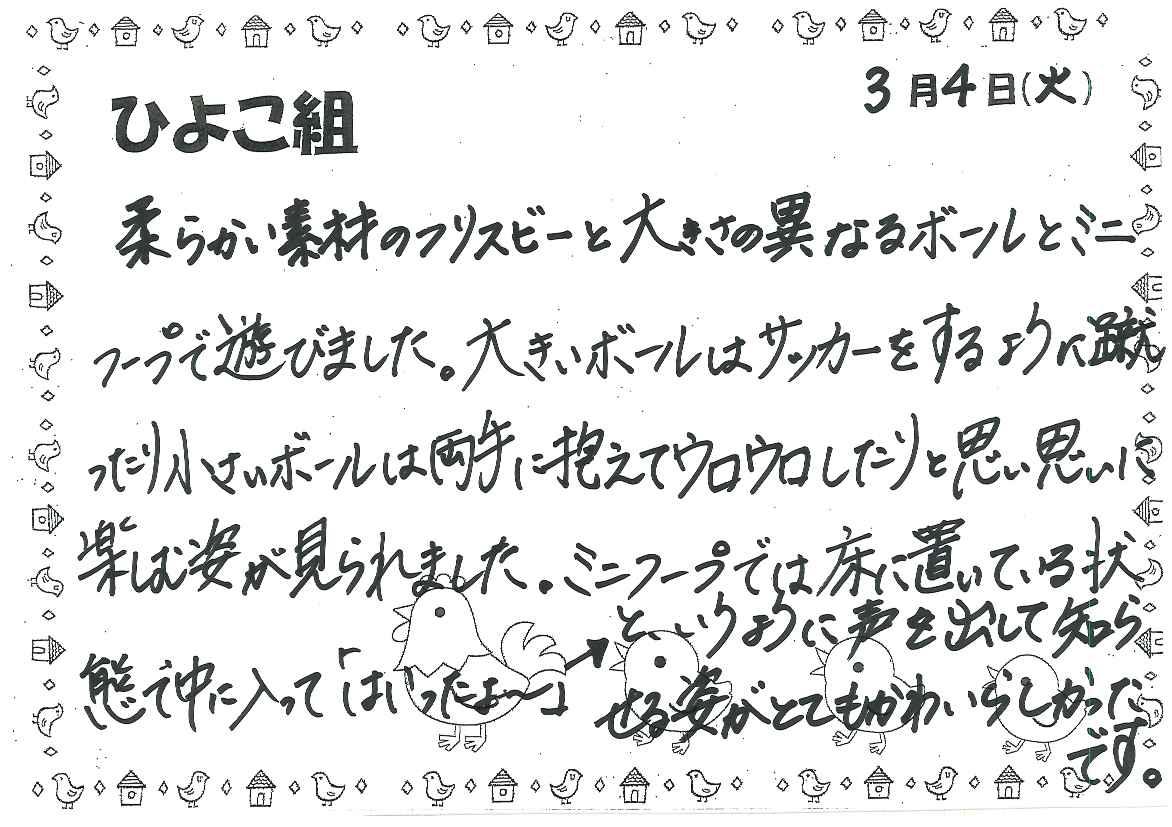 ひよこ組
3月4日(火)
柔らかい素材のフリスビーと大きさの異なるボールとミニ
フープで遊びました。大きいボールはサッカーをするように蹴
ったり小さいボールは両手に抱えてウロウロしたりと思い思いに
楽しむ姿が見られました。ミニフープでは床に置いている状
態で中に入って「はいったよ〜」
と、いうように声を出して知ら
せる姿がとてもかわいらしかった
です。